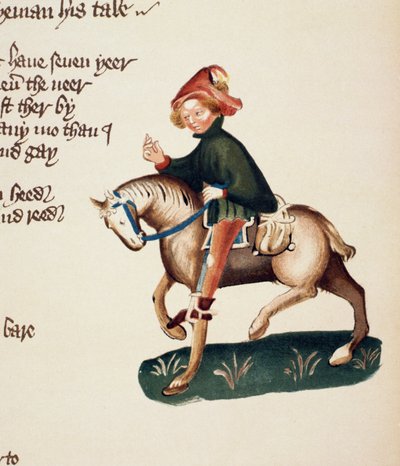 yeman his tale
t haue seuen yeer
neuͬ the neer
st ther by
any mo than I
nd gay
n heed
nd reed
bare
to